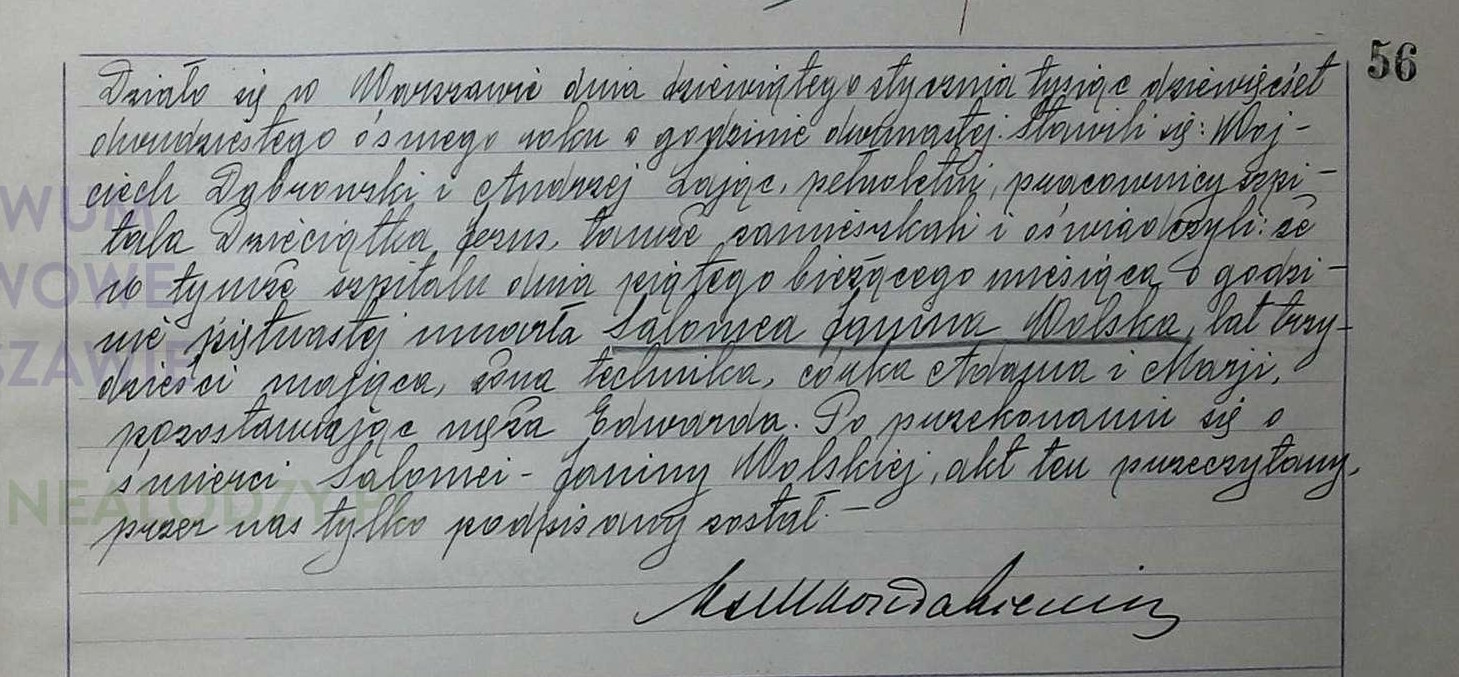 56
Działo się w Warszawie dnia dziewiątego stycznia tysiąc dziewięćset
dwudziestego ósmego roku o godzinie dwunastej. Stawili się: Woj-
ciech Dąbrowski i Andrzej Zając, pełnoletni, pracownicy szpi-
tala Dzieciątka Jezus, tamże zamieszkali i oświadczyli: że
w tymże szpitalu dnia piątego bieżącego miesiąca o godzi-
nie piętnastej umarła Salomea Janina Wolska, lat trzy-
dzieści mająca, żona technika, córka Adama i Marji,
pozostawiając męża Edwarda. Po przekonaniu się o
śmierci Salomei-Janiny Wolskiej, akt ten przeczytany,
przez nas tylko podpisany został.—
WUM
WOWE
SZAWIE
NEALODZY.PL